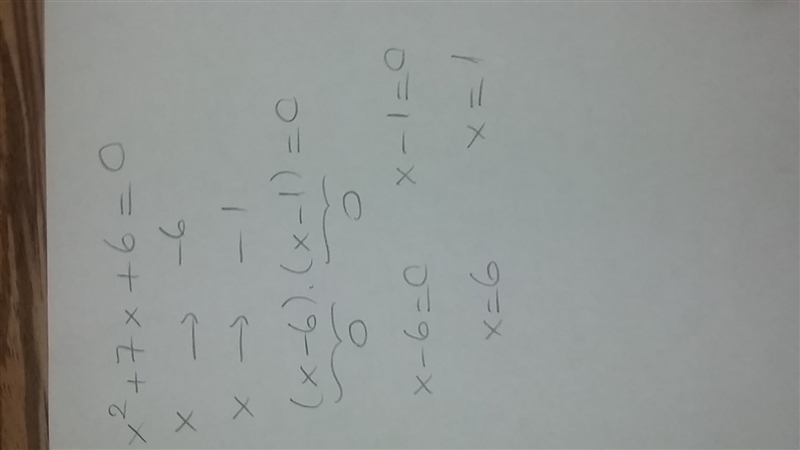 x² + 7x + 6 = 0
x → -6
x → -1
(x - 6) . (x - 1) = 0
0 0
x - 6 = 0 x - 1 = 0
x = 6 x = 1